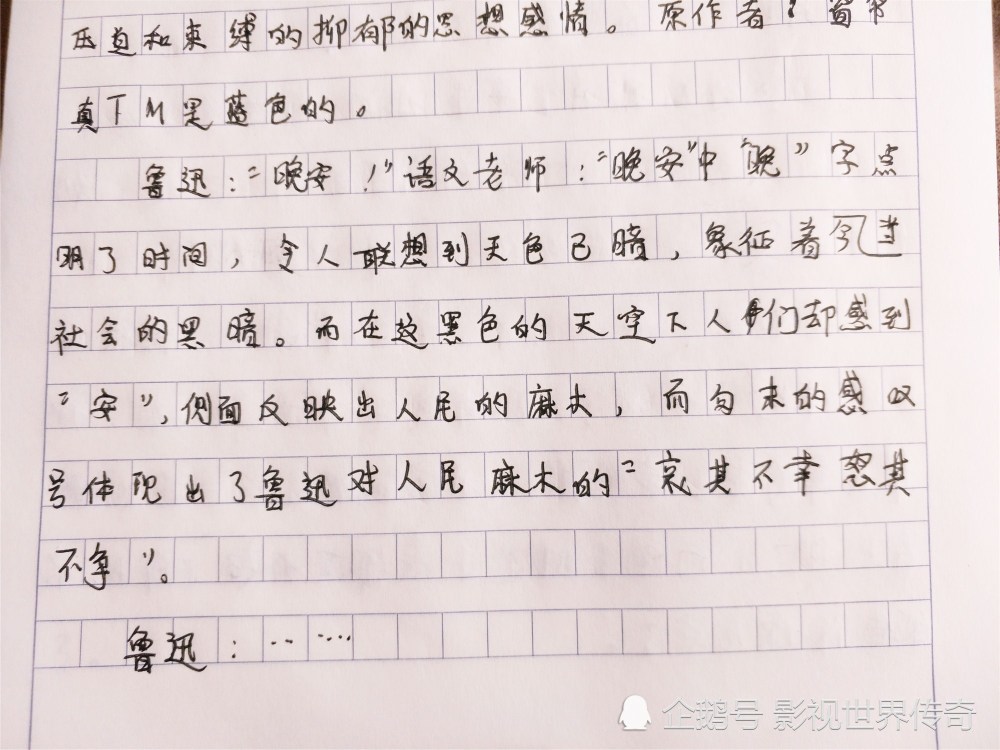 压迫和束缚的抑郁的思想感情。原作者：窗帘
真TM是蓝色的。
鲁迅：“晚安！”语文老师：“晚安”中“晚”字点
明了时间，令人联想到天色已暗，象征着当
社会的黑暗。而在这黑色的天空下人们却感到
“安”，侧面反映出人民的麻木，而句末的感叹
号体现出了鲁迅对人民麻木的“哀其不幸怒其
不争”。
鲁迅：……
企鹅号 影视世界传奇